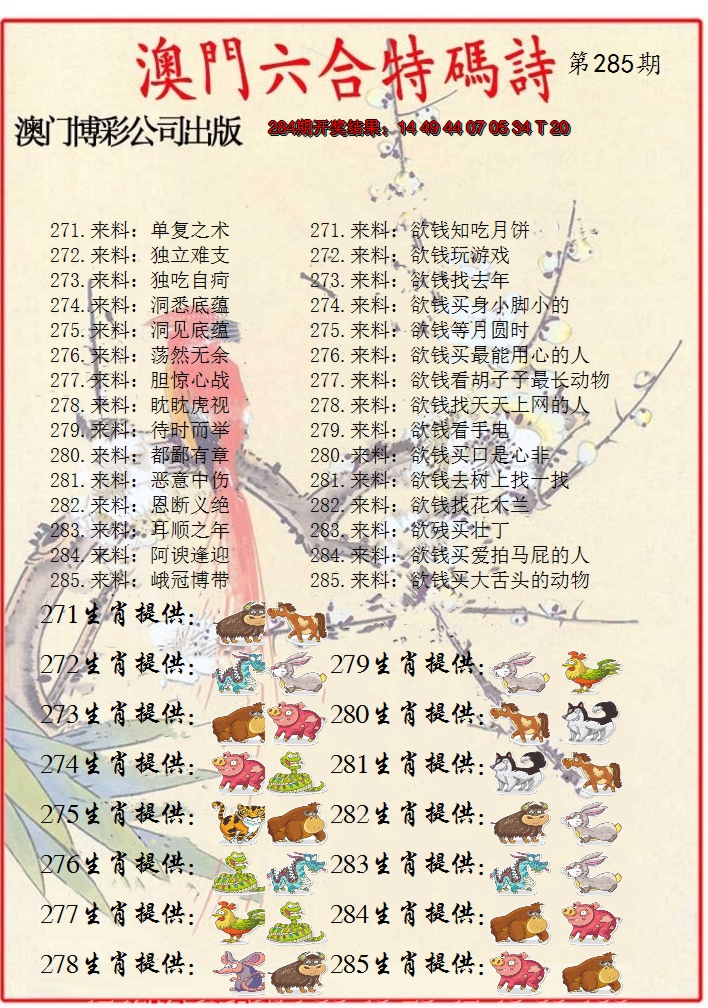 澳門六合特碼詩 第285期
澳门博彩公司出版 284期开奖结果：14 49 44 07 05 34 T 20
271.来料：单复之术 271.来料：欲钱知吃月饼
272.来料：独立难支 272.来料：欲钱玩游戏
273.来料：独吃自疴 273.来料：欲钱找去年
274.来料：洞悉底蕴 274.来料：欲钱买身小脚小的
275.来料：洞见底蕴 275.来料：欲钱等月圆时
276.来料：荡然无余 276.来料：欲钱买最能用心的人
277.来料：胆惊心战 277.来料：欲钱看胡子子最长动物
278.来料：眈眈虎视 278.来料：欲钱找天天上网的人
279.来料：待时而举 279.来料：欲钱看手电
280.来料：都鄙有章 280.来料：欲钱买口是心非
281.来料：恶意中伤 281.来料：欲钱去树上找一找
282.来料：恩断义绝 282.来料：欲钱找花木兰
283.来料：耳顺之年 283.来料：欲残买壮丁
284.来料：阿谀逢迎 284.来料：欲钱买爱拍马屁的人
285.来料：峨冠博带 285.来料：欲钱买大舌头的动物
271生肖提供：
272生肖提供： 279生肖提供：
273生肖提供： 280生肖提供：
274生肖提供： 281生肖提供：
275生肖提供： 282生肖提供：
276生肖提供： 283生肖提供：
277生肖提供： 284生肖提供：
278生肖提供： 285生肖提供：